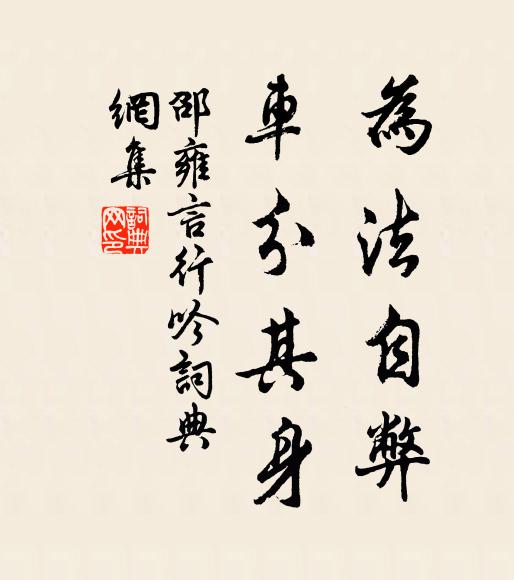 為法自弊
車分其身
邵雍言行吟詞典
網集
詞典
网印